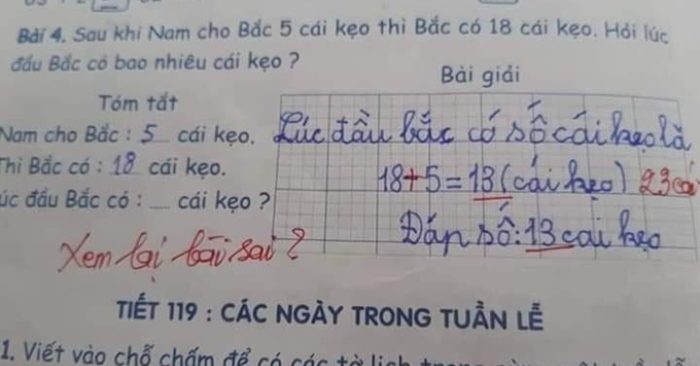 Bài 4. Sau khi Nam cho Bắc 5 cái kẹo thì Bắc có 18 cái kẹo. Hỏi lúc
đầu Bắc có bao nhiêu cái kẹo ?
Bài giải
Tóm tắt
Nam cho Bắc : 5 cái kẹo.
Thì Bắc có : 18 cái kẹo.
úc đầu Bắc có : __ cái kẹo ?
Lúc đầu bắc có số cái kẹo là
18+5=13 (cái kẹo) 23 cái
Đáp số: 13 cái kẹo
Xem lại bài sai ?
TIẾT 119 : CÁC NGÀY TRONG TUẦN LỄ
1. Viết vào chỗ chấm để có các tờ lịch trong